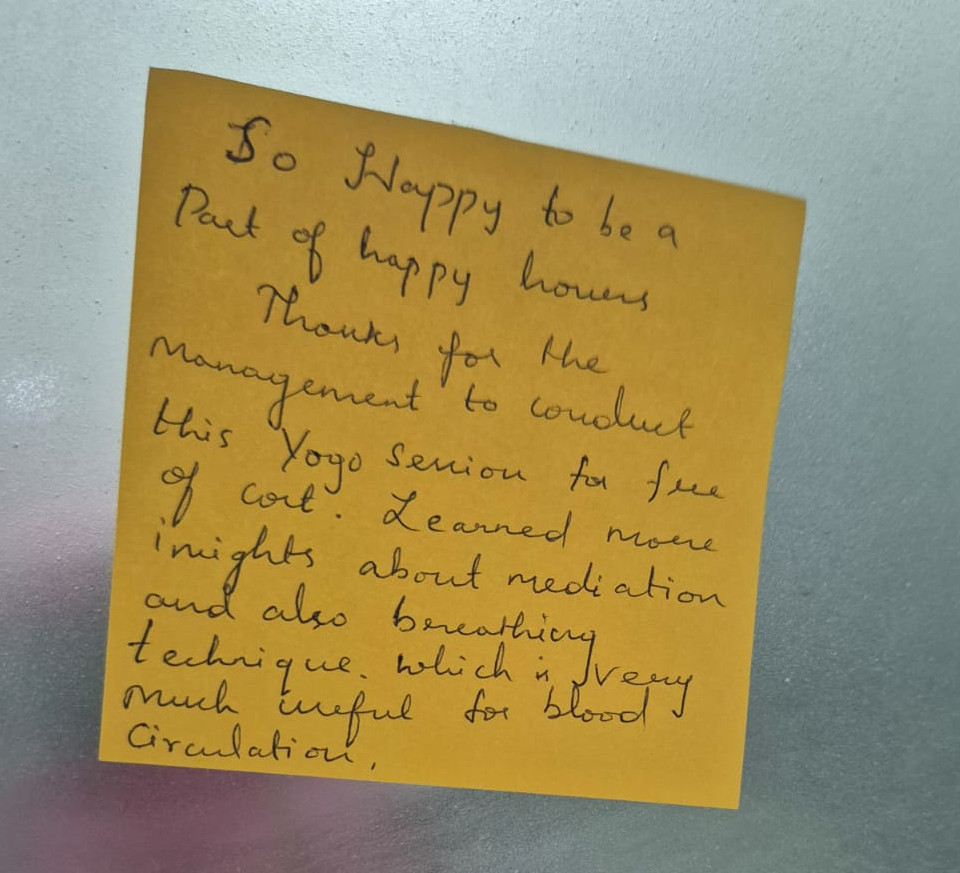 So Happy to be a
Part of happy houers
Thanks for the
management to conduct
this Yogo session for free
of cost. Learned more
insights about mediation
and also breathing
technique. which is very
much useful for blood
Circulation.